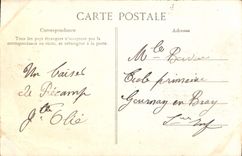 CARTE POSTALE
Correspondance
Adresse
Tous les pays étrangers n'acceptent pas la
correspondance au recto, se renseigner à la poste
Un baiser
de Fécamp
Mlle
Ecole primaire
Gournay en Bray